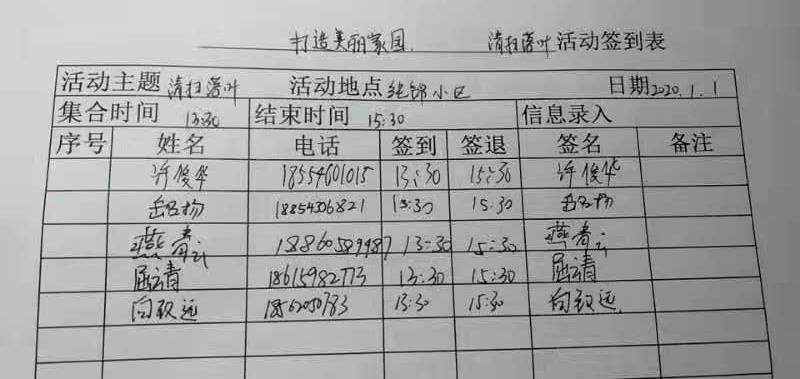 打造美丽家园 清扫落叶活动签到表
活动主题 清扫落叶 活动地点 锦小区 日期 2020.1.1
集合时间 13:30 结束时间 15:30 信息录入
序号 姓名 电话 签到 签退 签名 备注
许俊华 18554601015 13:30 15:30 许俊华
18854306821 13:30 15:30
燕青云 18860589987 13:30 15:30 燕青云
屈靖 18615982773 13:30 15:30 屈靖
向致远 18562050783 13:30 15:30 向致远